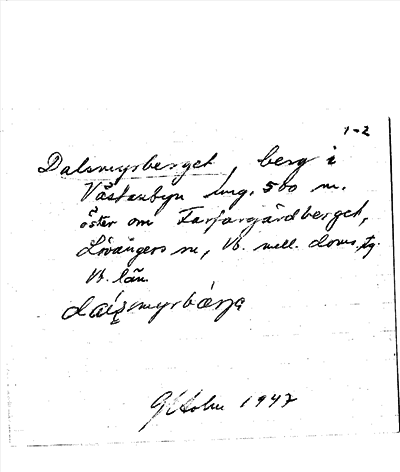 1-2
Dalsmyrberget, berg i
Västanbyn ung. 500 m.
öster om Farfargårdberget,
Lövångers sn, Vb. mell. doms. tg.
Vb. län.
1947